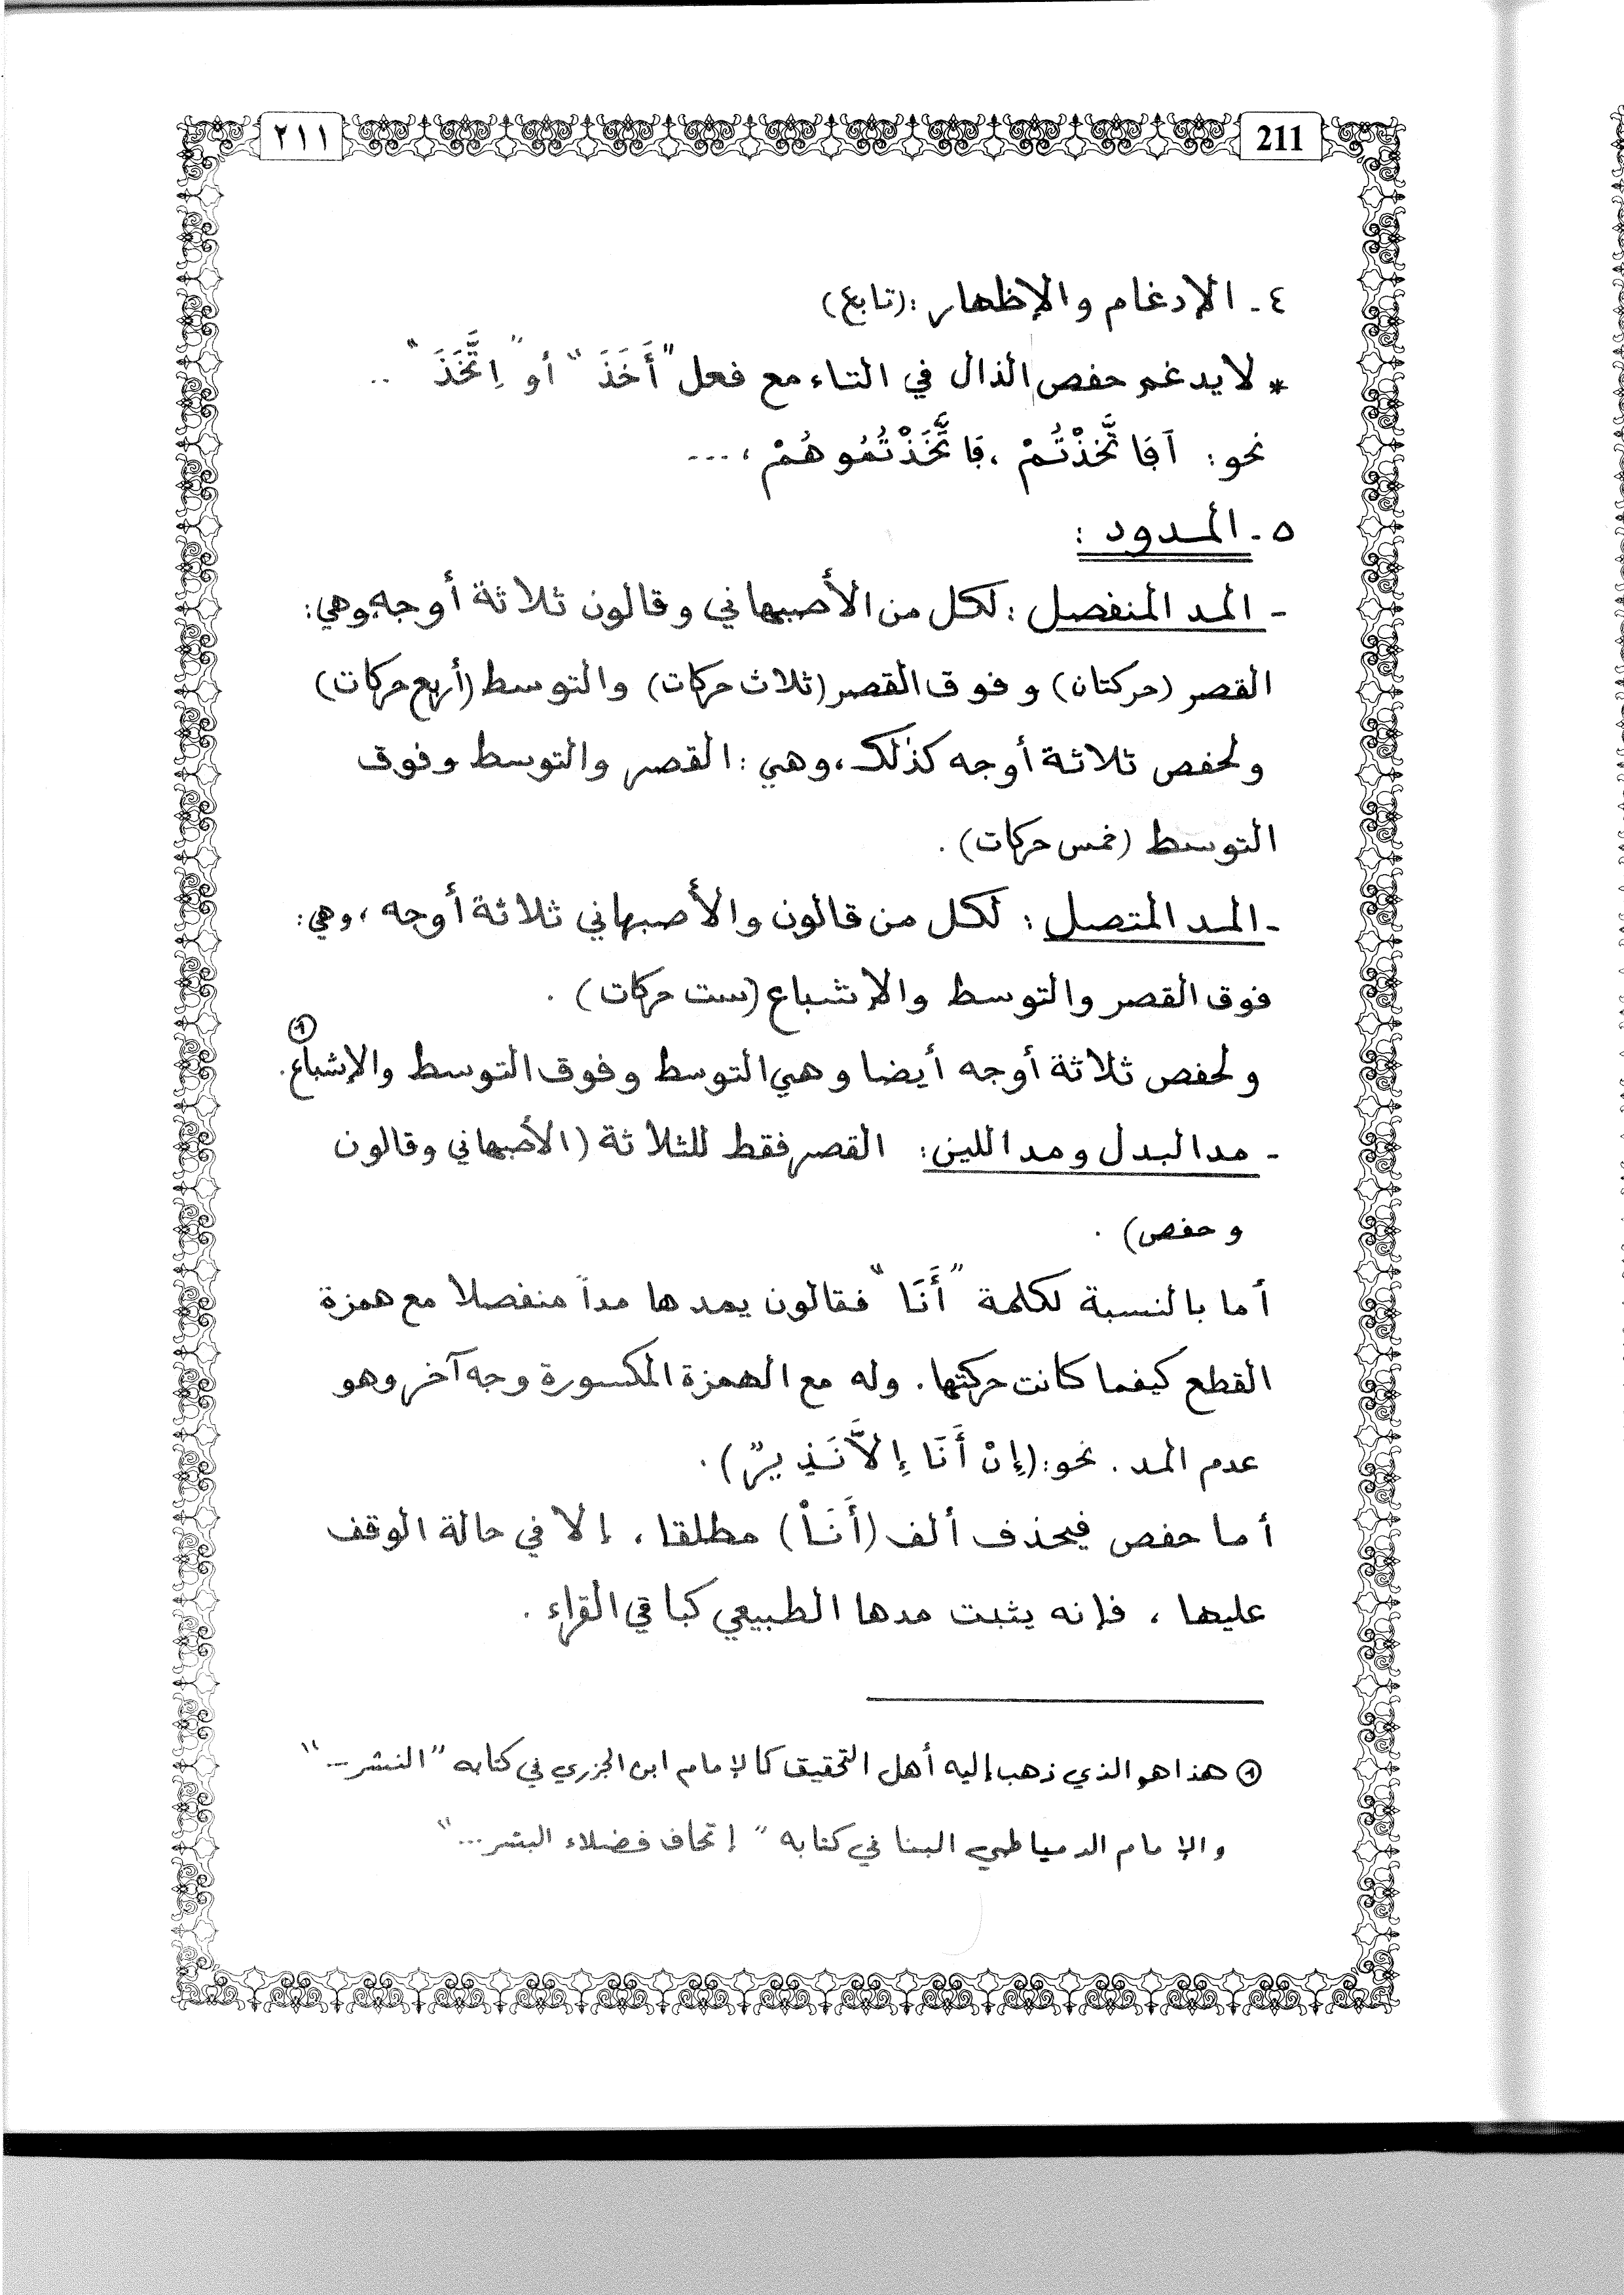 ٢١١
211
٤ - الإدغام والإظهار : (تابع)
* لا يدغم حفص الذال في التاء مع فعل "أَخَذَ" أو "اِتَّخَذَ" ..
نحو : فَاتَّخَذْتُمْ ، فَاتَّخَذْتُمُوهُمْ ، ...
٥ - المـدود :
- المد المنفصل : لكل من الأصبهاني وقالون ثلاثة أوجه وهي :
القصر (حركتان) وفوق القصر (ثلاث حركات) والتوسط (أربع حركات)
ولحفص ثلاثة أوجه كذلك ، وهي : القصر والتوسط وفوق
التوسط (خمس حركات) .
- المد المتصل : لكل من قالون والأصبهاني ثلاثة أوجه ، وهي :
فوق القصر والتوسط والإشباع (ست حركات) .
ولحفص ثلاثة أوجه أيضا وهي التوسط وفوق التوسط والإشباع ①.
- مد البدل ومد اللين : القصر فقط للثلاثة (الأصبهاني وقالون
وحفص) .
أما بالنسبة لكلمة "أَنَا" فقالون يمدها مداً منفصلا مع همزة
القطع كيفما كانت حركتها . وله مع الهمزة المكسورة وجه آخر وهو
عدم المد . نحو : (إِنْ أَنَا إِلاَّ نَذِيرٌ) .
أما حفص فيحذف ألف (أَنَاْ) مطلقا ، إلا في حالة الوقف
عليها ، فإنه يثبت مدها الطبيعي كباقي القراء .
① هذا هو الذي ذهب إليه أهل التحقيق كالإمام ابن الجزري في كتابه "النشر ..."
والإمام الدمياطي البنا في كتابه "إتحاف فضلاء البشر ..."